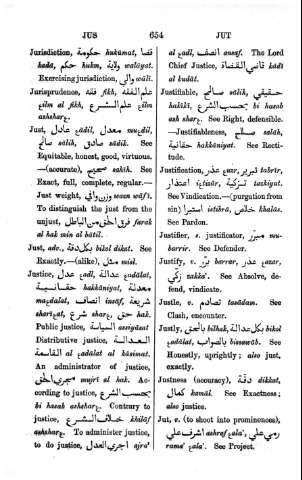 JUS 654 JUT
Jurisdiction, حكومة hukūmat, قضا
kadā, حكم hukm, ولاية walāyat.
Exercising jurisdiction, والي wālī.
Jurisprudence, علم الفقه fikh,
عيlm al fikh, علم الشرع عيlm
ashsharع.
Just, عادل عādil, معدل muعdil,
صالح sālih, صادق sādik. See
Equitable, honest, good, virtuous.
—(accurate), صحيح sahīh. See
Exact, full, complete, regular.—
Just weight, وزن وافي wazn wāfī.
To distinguish the just from the
unjust, فرق الحق من الباطل farak
al hak min al bātil.
Just, adv., بكل دقة bikol dikat. See
Exactly.—(alike), مثل misl.
Justice, عدل عadl, عدالة عadālat,
حقانية hakkāniyat, معدلة
maعdalat, انصاف insāf, شريعة
sharīعat, شرع sharع, حق hak.
Public justice, السياسة assiyāsat
Distributive justice, العدالة
القاسمة al عadālat al kāsimat.
An administrator of justice,
مجري الحق mujrī al hak. Ac-
cording to justice, بحسب الشرع
bi hasab ashsharع. Contrary to
justice, خلاف الشرع khilāf
ashsharع. To administer justice,
to do justice, اجري العدل ajra'
al عadl, انصف ansaf. The Lord
Chief Justice, قاضي القضاة kādī
al kudāt.
Justifiable, صالح sālih, حقيقي
hakīkī, بحسب الشرع bi hasab
ash sharع. See Right, defensible.
—Justifiableness, صلاح salāh,
حقانية hakkāniyat. See Recti-
tude.
Justification, تبرير tabrīr, عذر عazr,
اعتذار iعtizār, تزكية tazkiyat.
See Vindication.—(purgation from
sin) استبرا istibrā, خلاص khalās.
See Pardon.
Justifier, s., justificator, مبرر mu-
barrir. See Defender.
Justify, v. برر barrar, عذر عazar,
زكي zakka'. See Absolve, de-
fend, vindicate.
Justle, v. تصادم tasādam. See
Clash, encounter.
Justly, بالحق bilhak, بكل عدالة bikol
عadālat, بالصواب bissawāb. See
Honestly, uprightly; also just,
exactly.
Justness (accuracy), دقة dikkat,
كمال kamāl. See Exactness;
also justice.
Jut, v. (to shoot into prominences),
اشرف علي ashraf عala', رمي علي
rama' عala'. See Project.